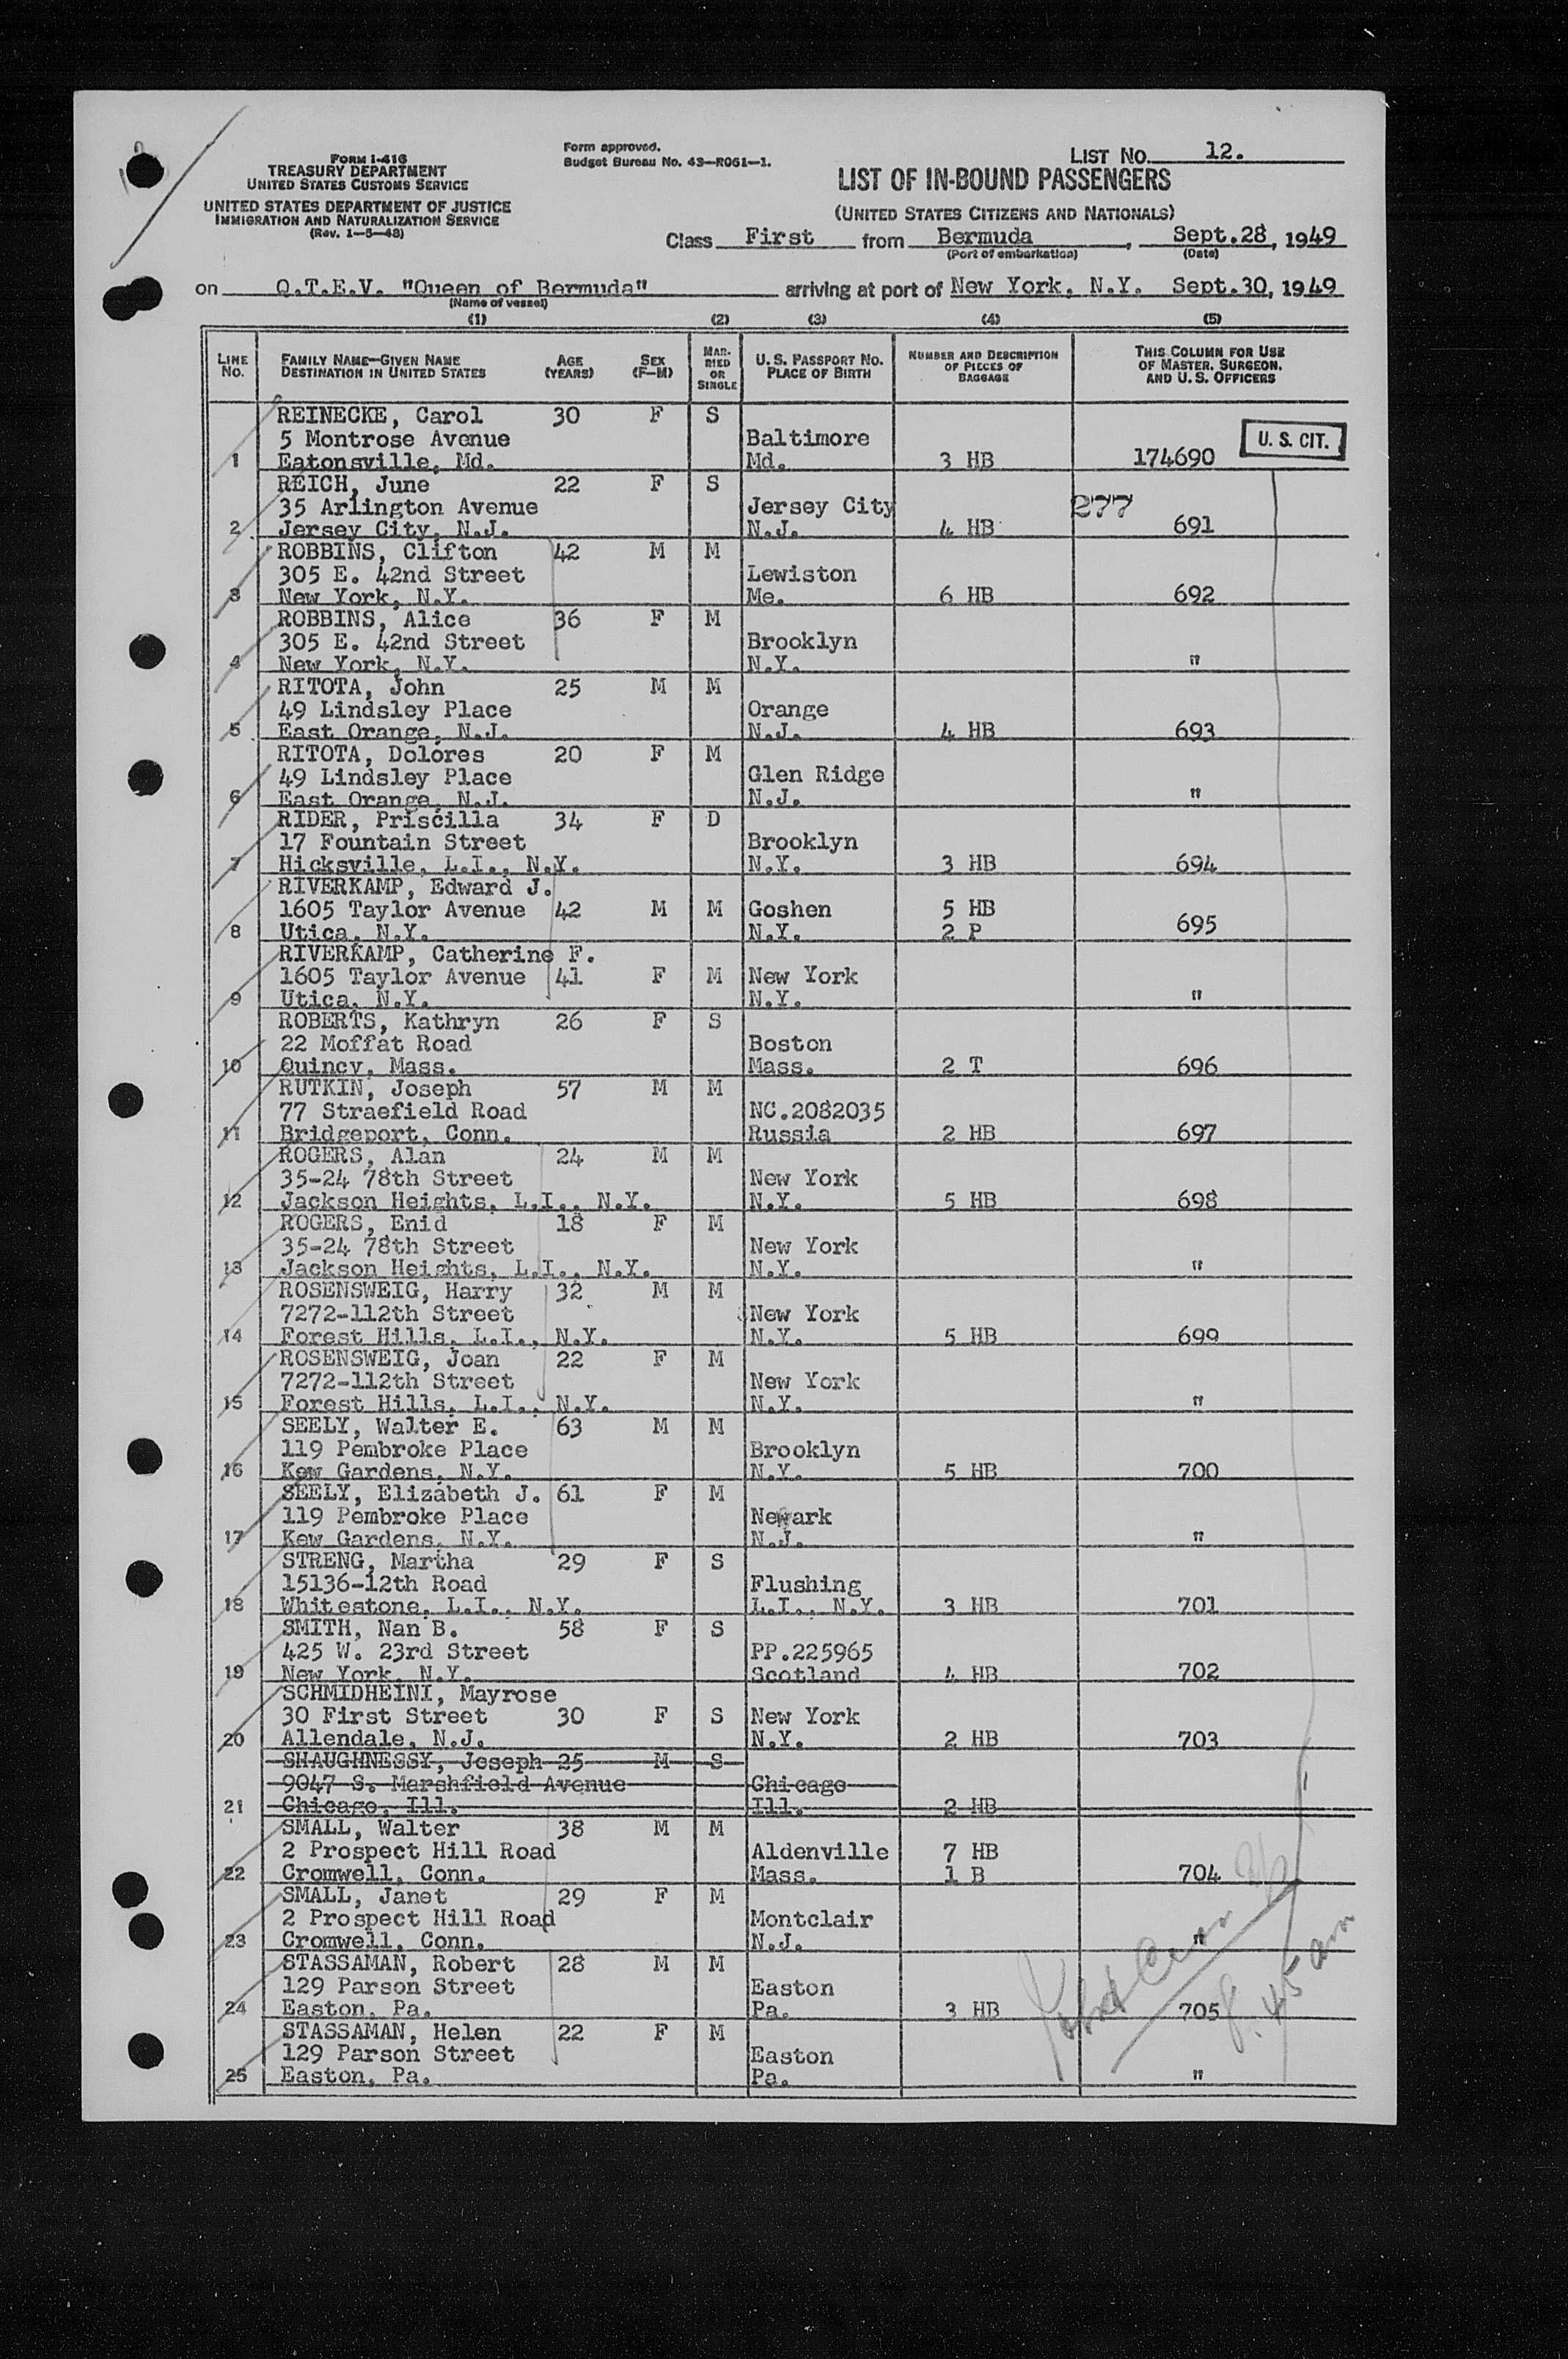 FORM I-416
TREASURY DEPARTMENT
UNITED STATES CUSTOMS SERVICE
UNITED STATES DEPARTMENT OF JUSTICE
IMMIGRATION AND NATURALIZATION SERVICE
(Rev. 1-5-48)
Form approved.
Budget Bureau No. 43-R061-1.
LIST NO. 12.
LIST OF IN-BOUND PASSENGERS
(UNITED STATES CITIZENS AND NATIONALS)
Class First from Bermuda, Sept.28, 1949
(Port of embarkation) (Date)
on Q.T.E.V. "Queen of Bermuda" arriving at port of New York, N.Y. Sept.30, 1949
(Name of vessel)
(1) (2) (3) (4) (5)
LINE No. FAMILY NAME—GIVEN NAME DESTINATION IN UNITED STATES AGE (YEARS) SEX (F-M) MARRIED OR SINGLE U. S. PASSPORT No. PLACE OF BIRTH NUMBER AND DESCRIPTION OF PIECES OF BAGGAGE THIS COLUMN FOR USE OF MASTER, SURGEON, AND U. S. OFFICERS
REINECKE, Carol 30 F S
5 Montrose Avenue Baltimore U. S. CIT.
1 Eatonsville, Md. Md. 3 HB 174690
REICH, June 22 F S
35 Arlington Avenue Jersey City 277
2 Jersey City, N.J. N.J. 4 HB 691
ROBBINS, Clifton 42 M M
305 E. 42nd Street Lewiston
3 New York, N.Y. Me. 6 HB 692
ROBBINS, Alice 36 F M
305 E. 42nd Street Brooklyn
4 New York, N.Y. N.Y. "
RITOTA, John 25 M M
49 Lindsley Place Orange
5 East Orange, N.J. N.J. 4 HB 693
RITOTA, Dolores 20 F M
49 Lindsley Place Glen Ridge
6 East Orange, N.J. N.J. "
RIDER, Priscilla 34 F D
17 Fountain Street Brooklyn
7 Hicksville, L.I., N.Y. N.Y. 3 HB 694
RIVERKAMP, Edward J.
1605 Taylor Avenue 42 M M Goshen 5 HB
8 Utica, N.Y. N.Y. 2 P 695
RIVERKAMP, Catherine F.
1605 Taylor Avenue 41 F M New York
9 Utica, N.Y. N.Y. "
ROBERTS, Kathryn 26 F S
22 Moffat Road Boston
10 Quincy, Mass. Mass. 2 T 696
RUTKIN, Joseph 57 M M
77 Straefield Road NC.2082035
11 Bridgeport, Conn. Russia 2 HB 697
ROGERS, Alan 24 M M
35-24 78th Street New York
12 Jackson Heights, L.I., N.Y. N.Y. 5 HB 698
ROGERS, Enid 18 F M
35-24 78th Street New York
13 Jackson Heights, L.I., N.Y. N.Y. "
ROSENSWEIG, Harry 32 M M
7272-112th Street New York
14 Forest Hills, L.I., N.Y. N.Y. 5 HB 699
ROSENSWEIG, Joan 22 F M
7272-112th Street New York
15 Forest Hills, L.I., N.Y. N.Y. "
SEELY, Walter E. 63 M M
119 Pembroke Place Brooklyn
16 Kew Gardens, N.Y. N.Y. 5 HB 700
SEELY, Elizabeth J. 61 F M
119 Pembroke Place Newark
17 Kew Gardens, N.Y. N.J. "
STRENG, Martha 29 F S
15136-12th Road Flushing
18 Whitestone, L.I., N.Y. L.I., N.Y. 3 HB 701
SMITH, Nan B. 58 F S
425 W. 23rd Street PP.225965
19 New York, N.Y. Scotland 4 HB 702
SCHMIDHEINI, Mayrose
30 First Street 30 F S New York
20 Allendale, N.J. N.Y. 2 HB 703
SHAUGHNESSY, Joseph 25 M S
9047 S. Marshfield Avenue Chicago
21 Chicago, Ill. Ill. 2 HB
SMALL, Walter 38 M M
2 Prospect Hill Road Aldenville 7 HB
22 Cromwell, Conn. Mass. 1 B 704
SMALL, Janet 29 F M
2 Prospect Hill Road Montclair
23 Cromwell, Conn. N.J. "
STASSAMAN, Robert 28 M M
129 Parson Street Easton
24 Easton, Pa. Pa. 3 HB 705
8.45 am
STASSAMAN, Helen 22 F M
129 Parson Street Easton
25 Easton, Pa. Pa. "